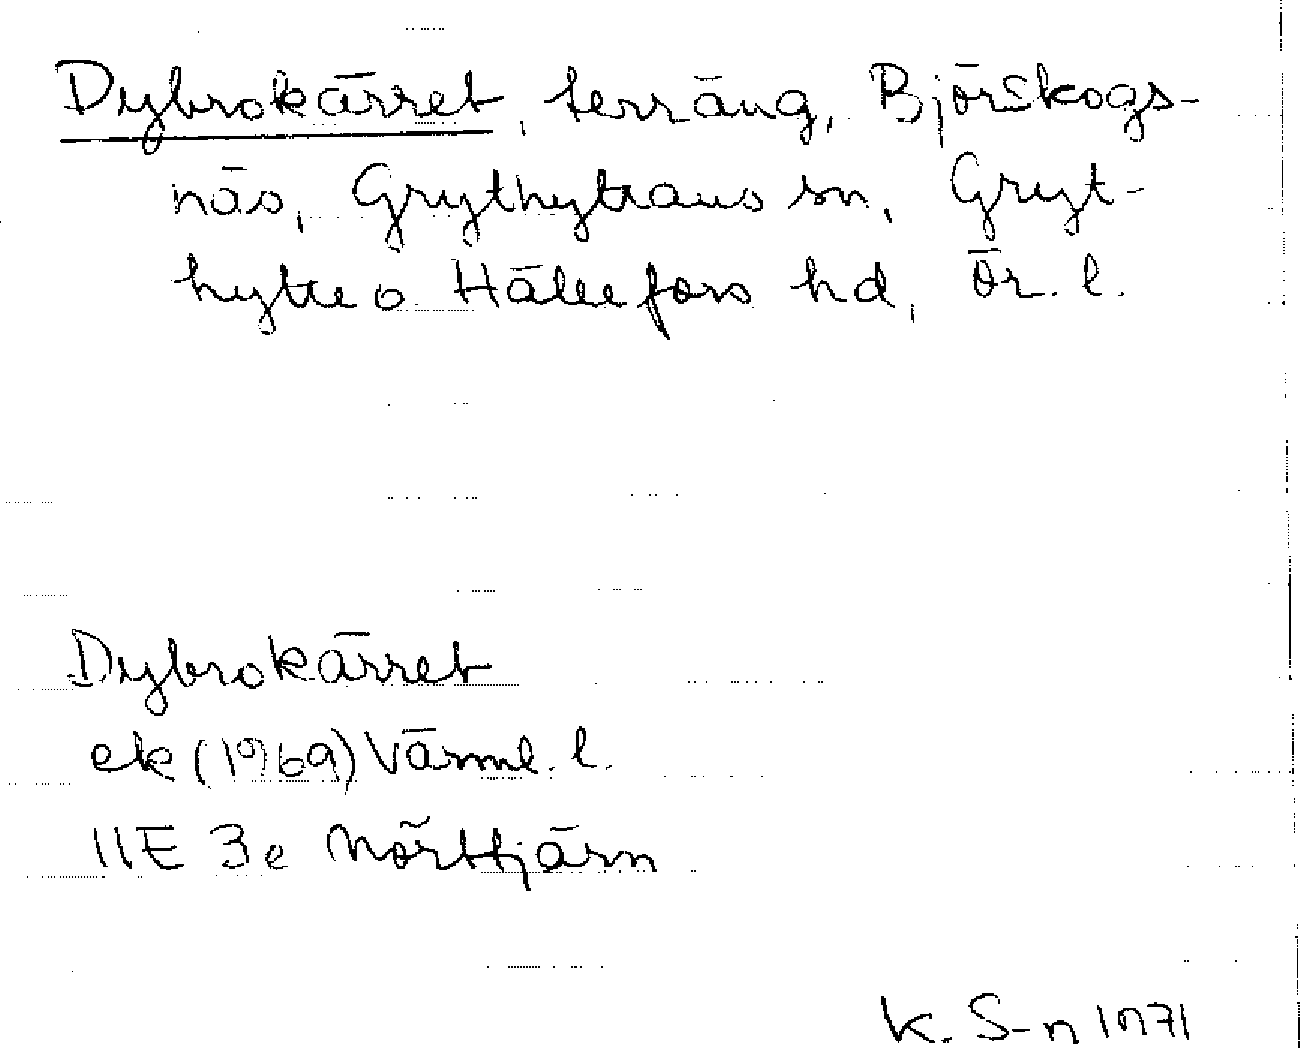 Dybrokärret, terräng, Björskogs-
näs, Grythyttans sn, Gryt-
hytte o Hällefors hd, Ör. l.
Dybrokärret
ek (1969) Värml. l.
11E 3e Mörttjärn
K. S-n 1971